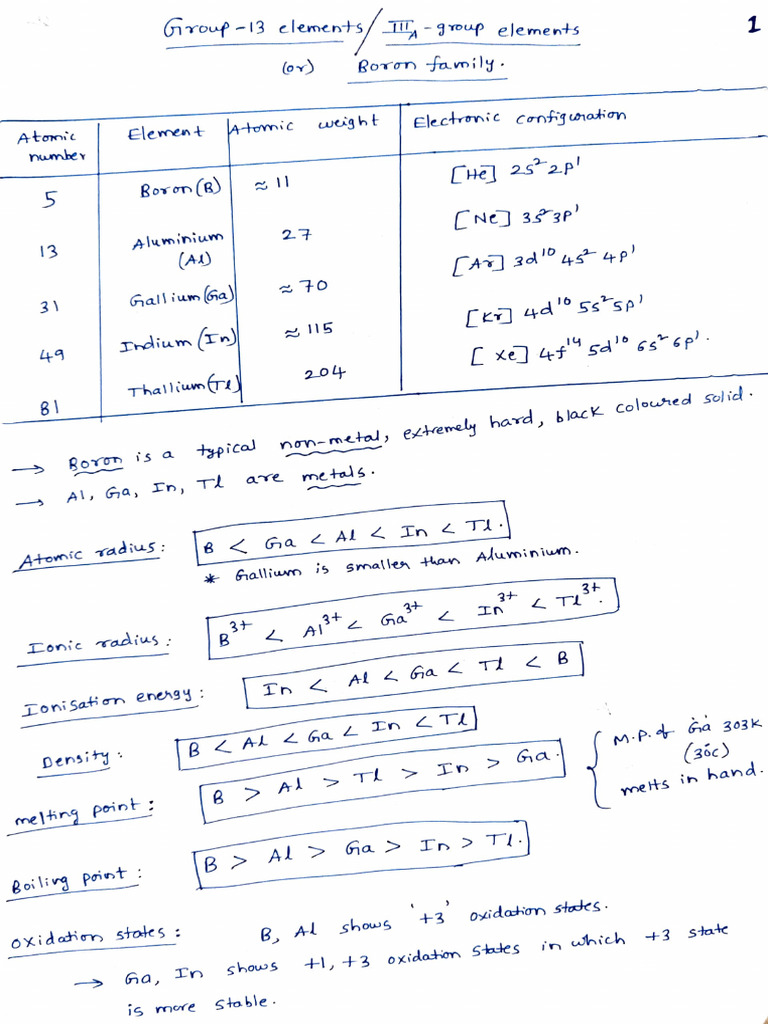 1
Group-13 elements / III_A-group elements
(or) Boron family.
Atomic number | Element | Atomic weight | Electronic configuration
5 | Boron (B) | ≈ 11 | [He] 2s² 2p¹
13 | Aluminium (Al) | 27 | [Ne] 3s² 3p¹
31 | Gallium (Ga) | ≈ 70 | [Ar] 3d¹⁰ 4s² 4p¹
49 | Indium (In) | ≈ 115 | [Kr] 4d¹⁰ 5s² 5p¹
81 | Thallium (Tl) | 204 | [Xe] 4f¹⁴ 5d¹⁰ 6s² 6p¹.
→ Boron is a typical non-metal, extremely hard, black coloured solid.
→ Al, Ga, In, Tl are metals.
Atomic radius: B < Ga < Al < In < Tl.
* Gallium is smaller than Aluminium.
Ionic radius: B³⁺ < Al³⁺ < Ga³⁺ < In³⁺ < Tl³⁺.
Ionisation energy: In < Al < Ga < Tl < B
Density: B < Al < Ga < In < Tl
melting point: B > Al > Tl > In > Ga.
M.P. of Ga 303K
(30°c)
melts in hand.
Boiling point: B > Al > Ga > In > Tl.
oxidation states: B, Al shows '+3' oxidation states.
→ Ga, In shows +1, +3 oxidation states in which +3 state
is more stable.